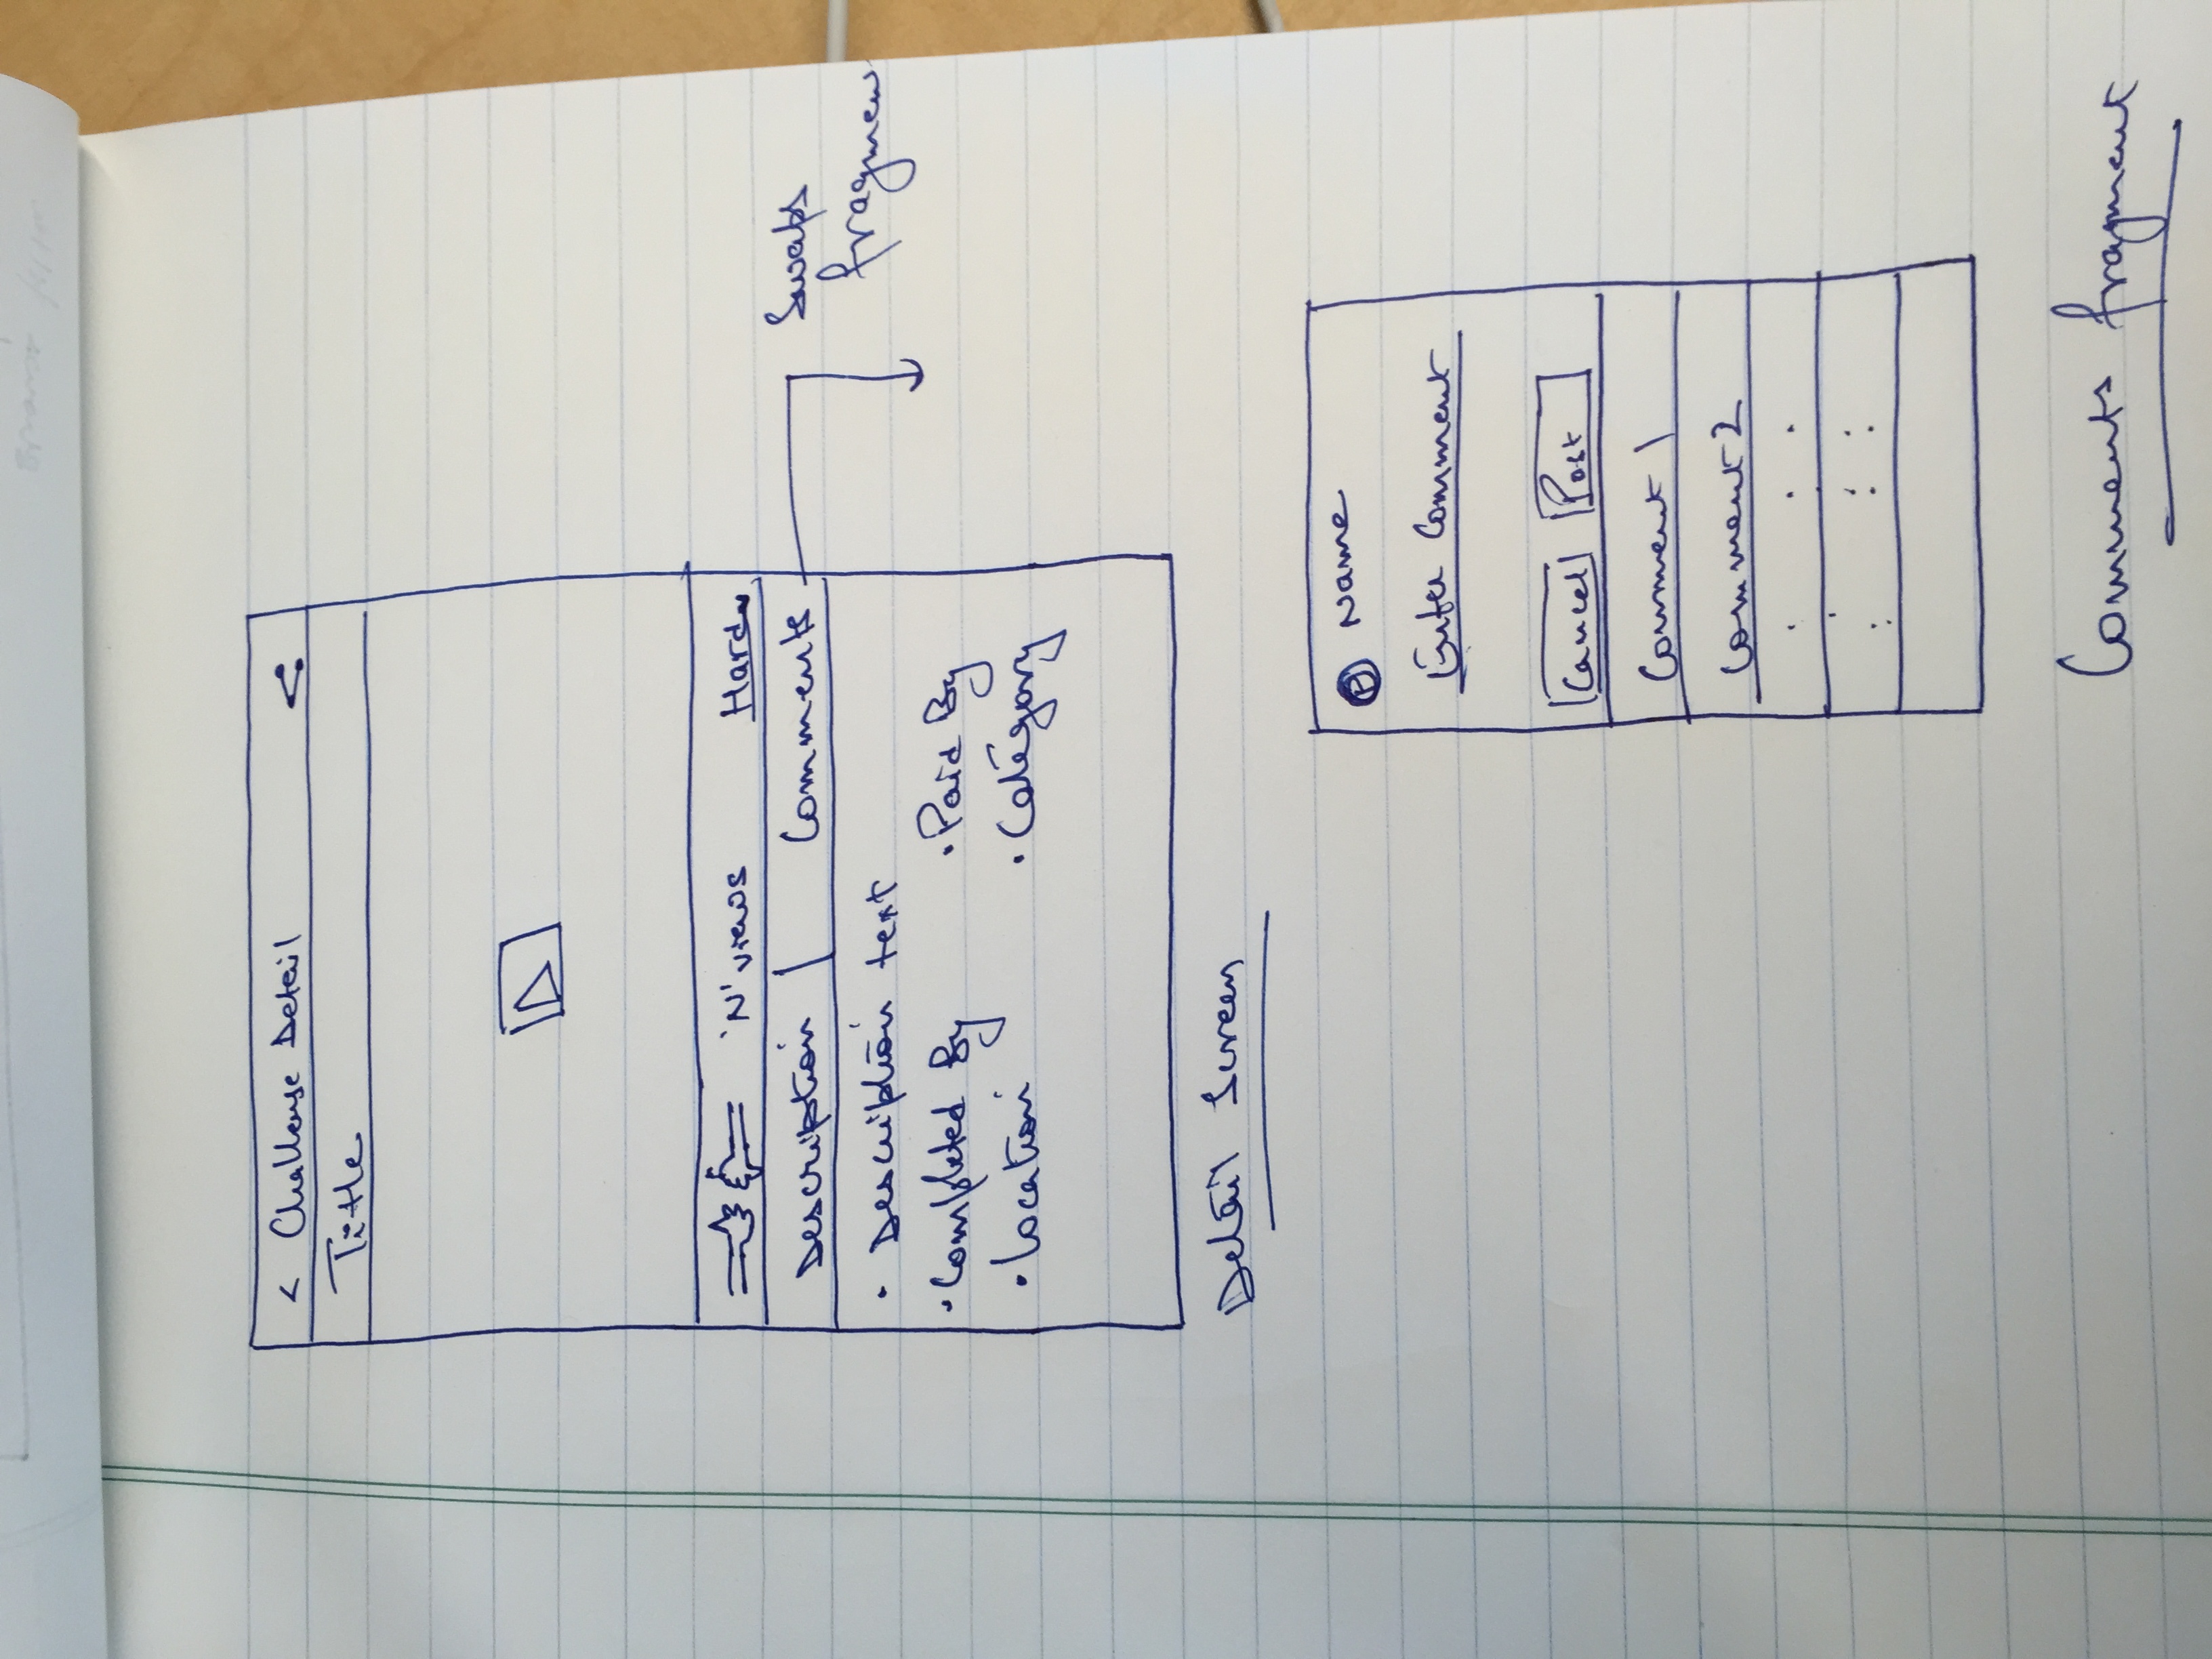 < Challenge Detail
Title
'N' views Hard
Description | Comments
Swaps
fragmen
• Description text
• Completed By • Paid By
• Location • Category
Detail Screen
Name
Enter Comment
Cancel Post
Comment 1
Comment 2
Comments fragment